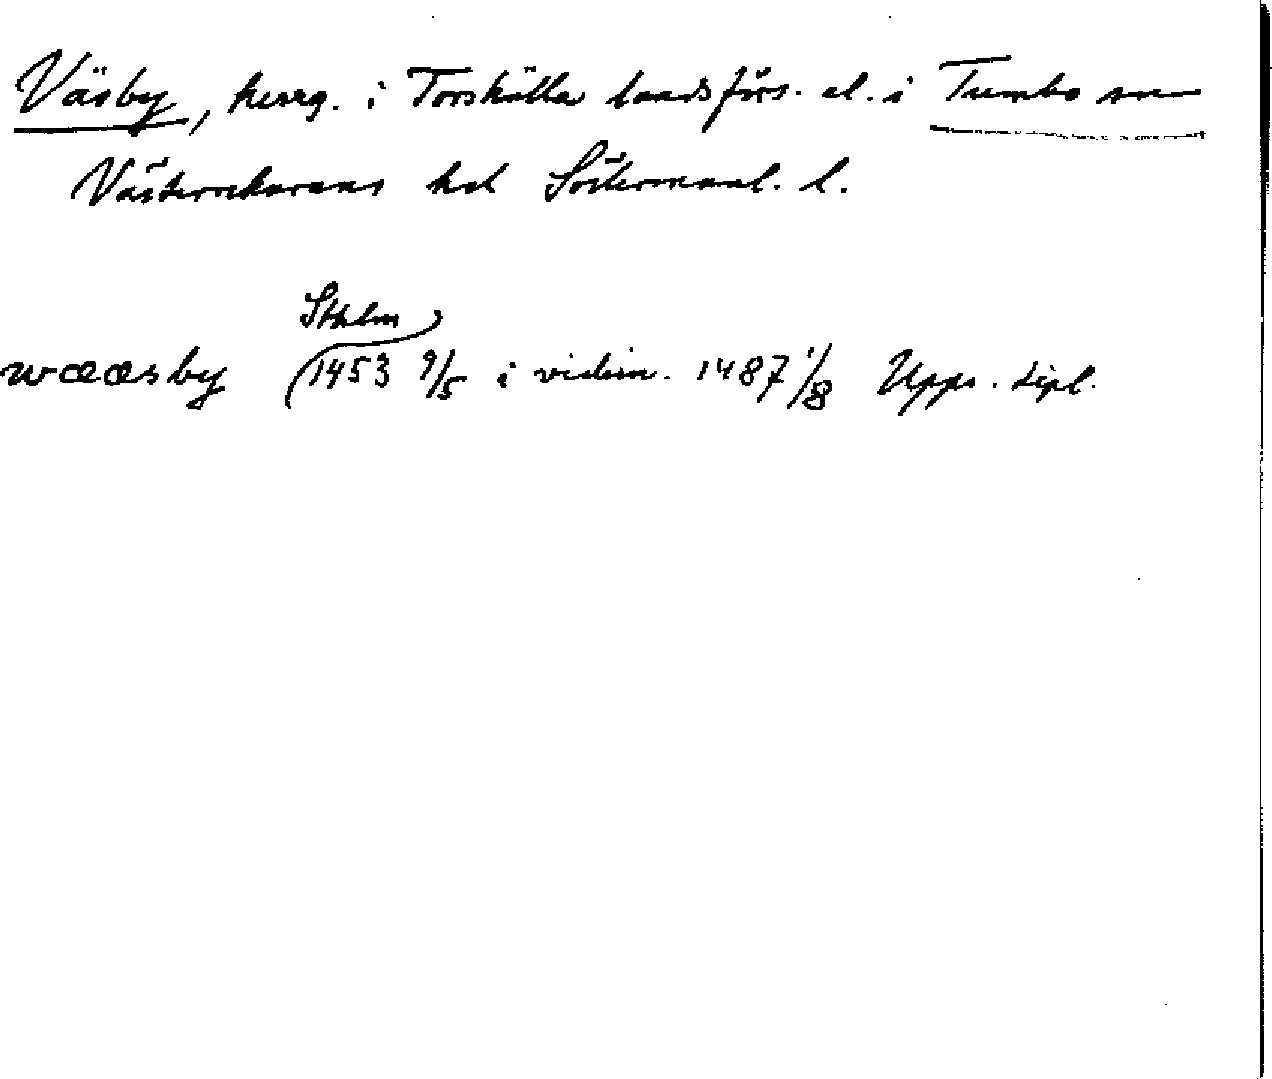 Väsby, herrg. i Torshälla landsförs. el. i Tumbo sn
Västerrekarens hd Södermanl. l.
Sthlm
wææsby (1453 9/5 i vidim. 1487 1/8 Upps. dipl.